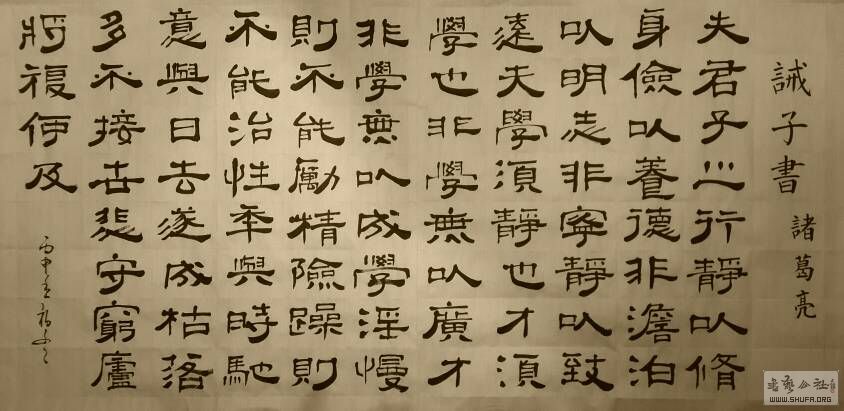 誡子書 諸葛亮
夫君子之行靜以脩
身儉以養德非澹泊
以明志非寧靜以致
遠夫學須靜也才須
學也非學無以廣才
非學無以成學淫慢
則不能勵精險躁則
不能治性年與時馳
意與日去遂成枯落
多不接世悲守窮廬
將復何及
書藝公社
WWW.SHUFA.ORG